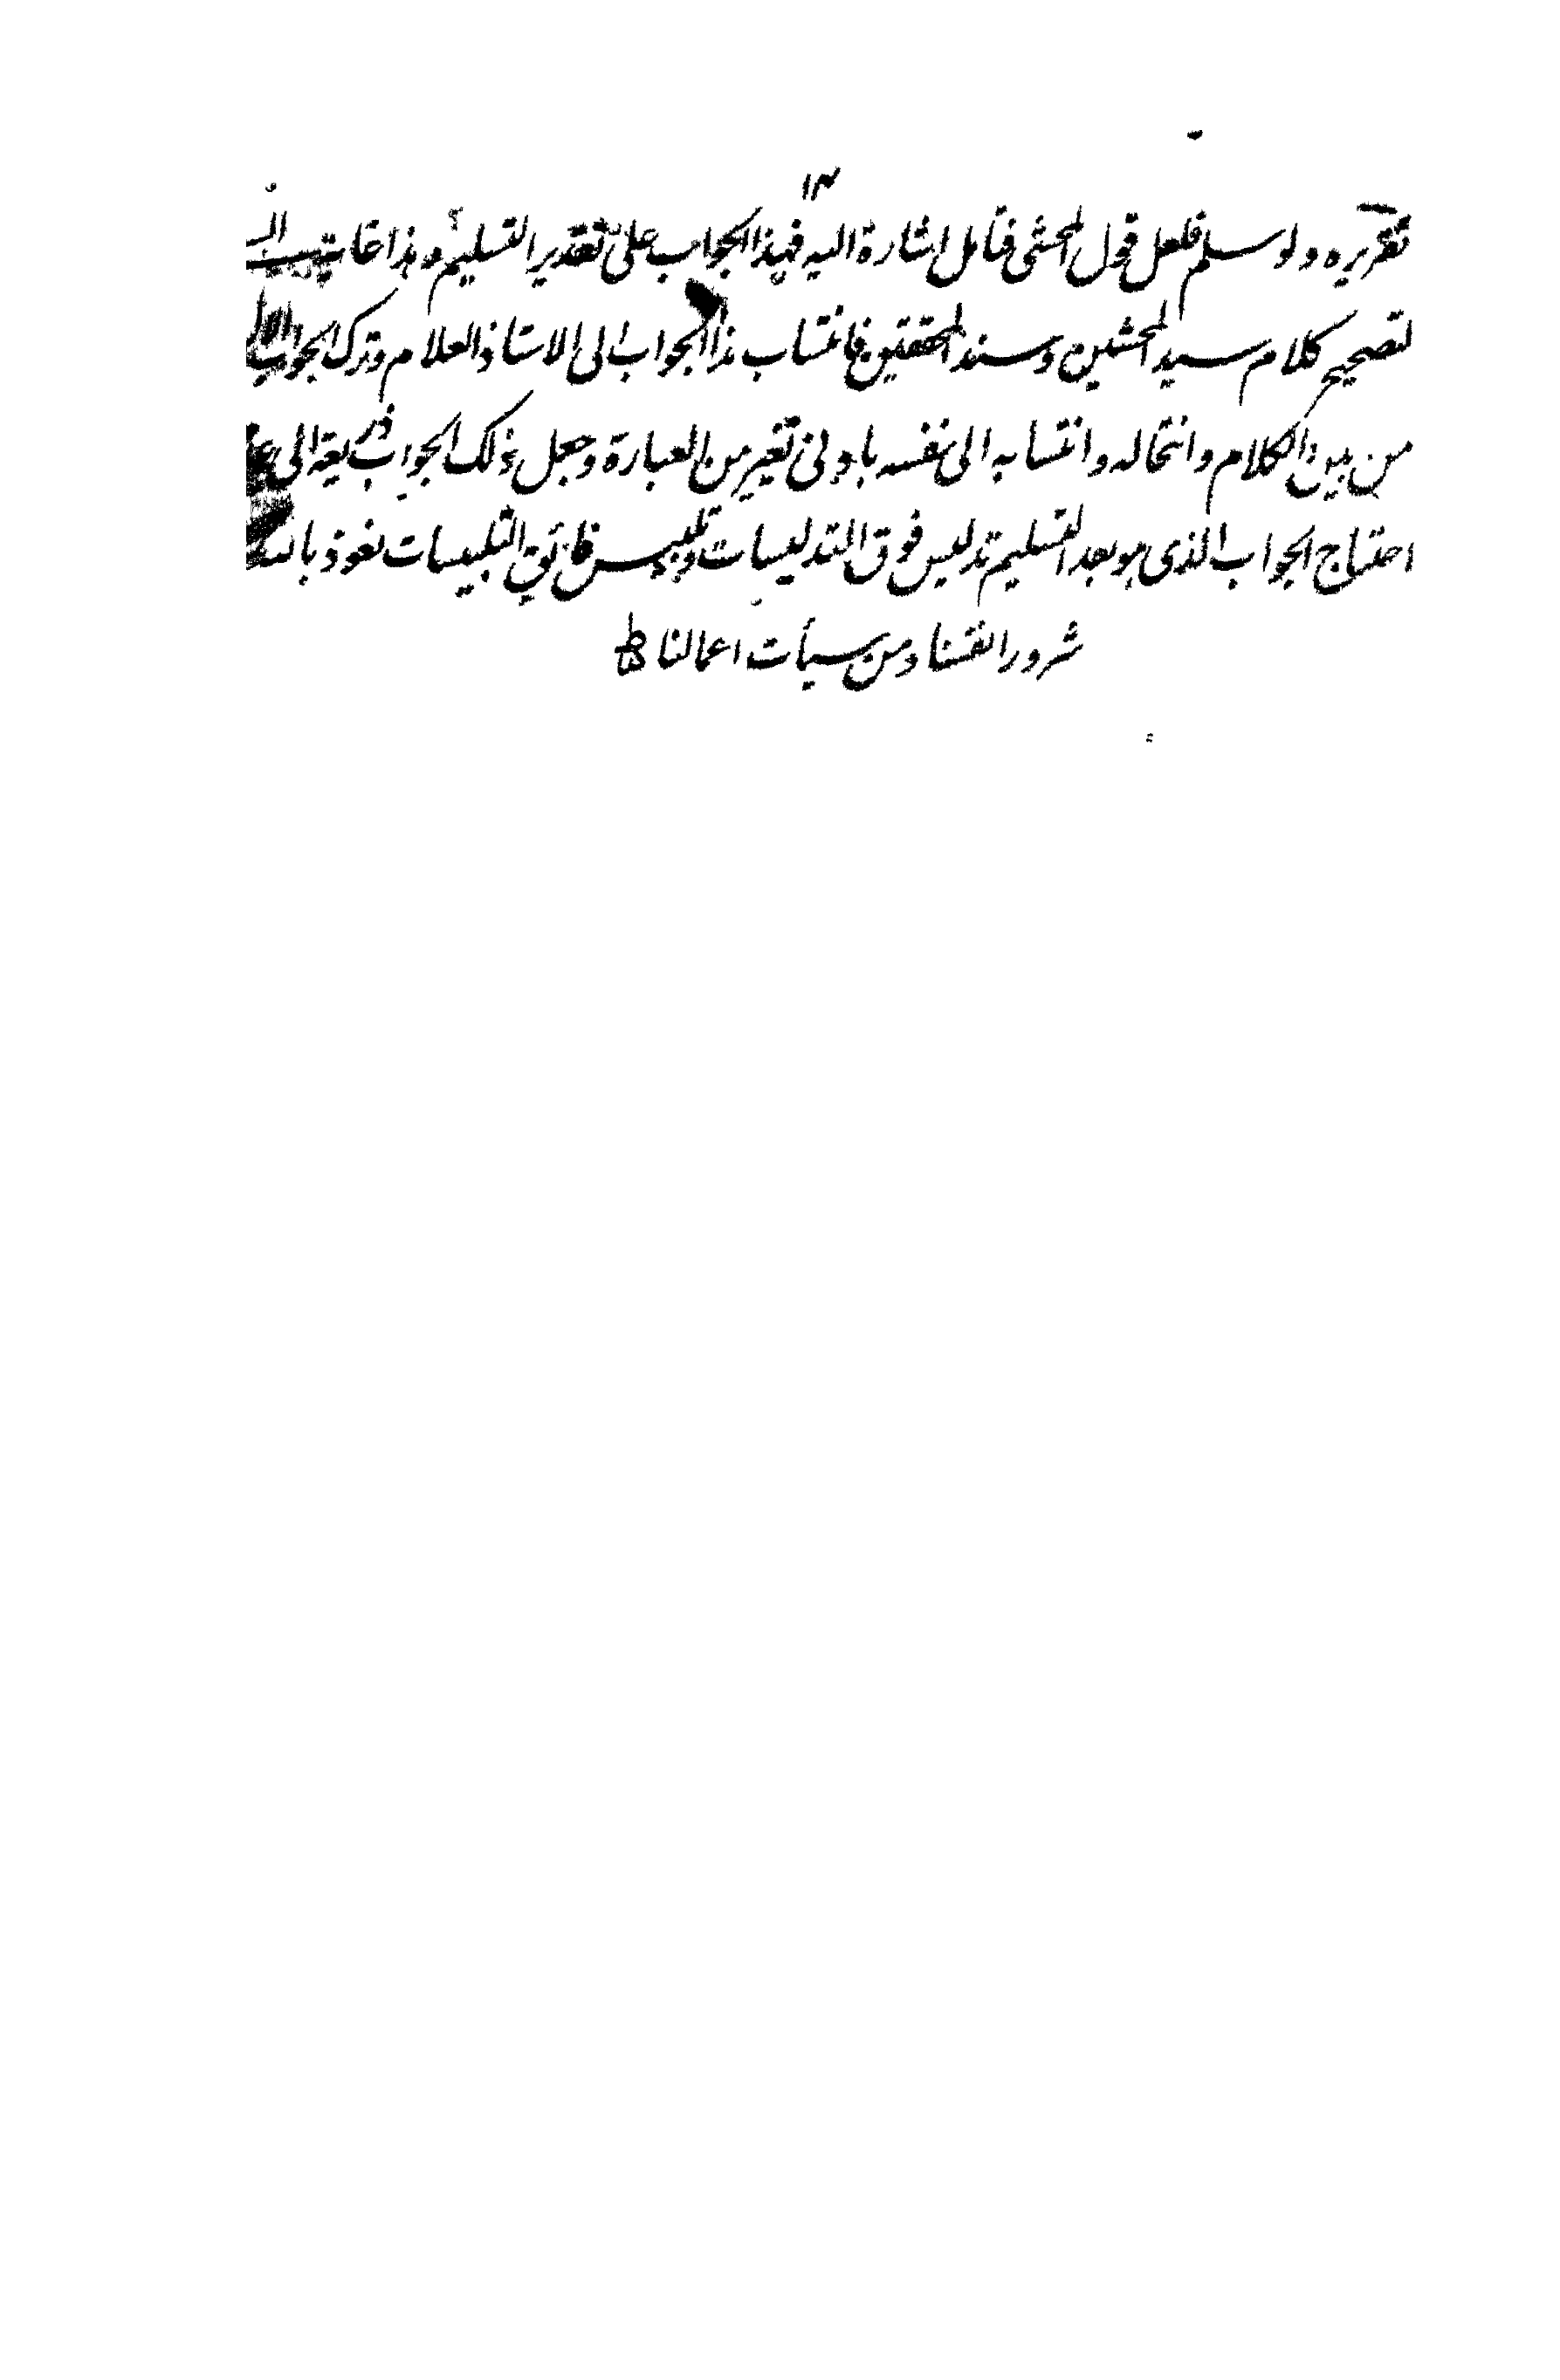 ١٣
تقريره ولو سلم فلعل قول المحشى فتأمل اشارة اليه فهذا الجواب على تقدير التسليم وهذا غاية
لتصحيح كلام سيد المحشين وسند المحققين فانتساب هذا الجواب الى الاستاذ العلام وترك الجواب
من بين الكلام وانتحاله وانتسابه الى نفسه بادنى تغير من العبارة وجعل ذلك الجواب ذريعة الى
احتياج الجواب الذى هو بعد التسليم تدليس فوق التدليسات وتلبيس فائق التلبيسات نعوذ بالله
شرور انفسنا ومن سيأت اعمالنا